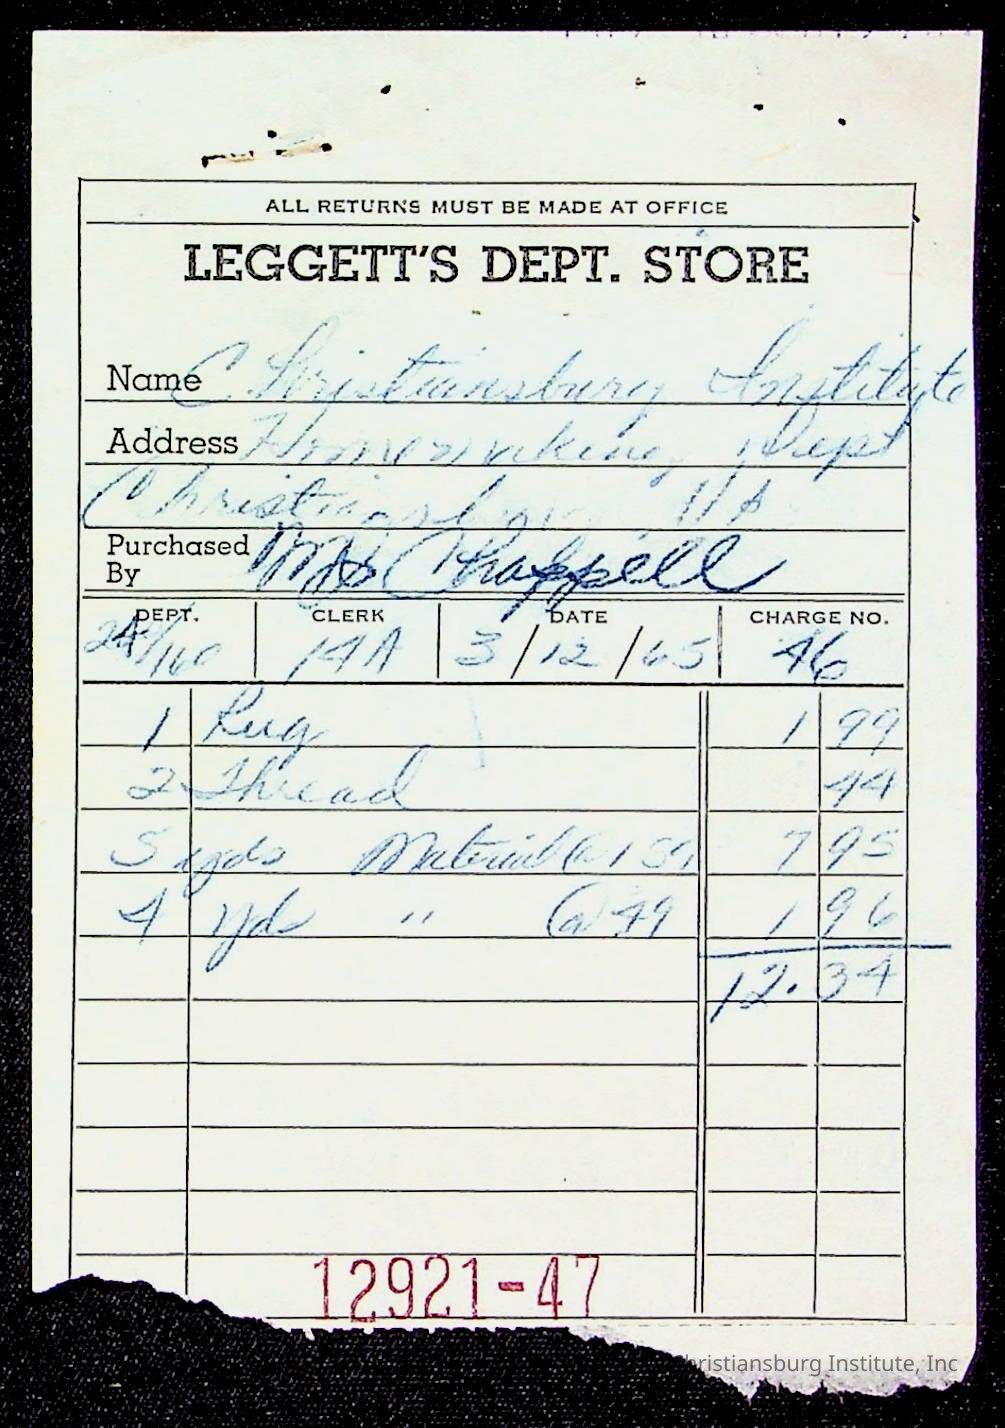 ALL RETURNS MUST BE MADE AT OFFICE
LEGGETT'S DEPT. STORE
Name Christiansburg Institute
Address Homemaking Dept
Christiansburg VA
Purchased By Mrs Chappell
DEPT. CLERK DATE CHARGE NO.
14A 3/12/65 46
1 Rug 1 99
2 Thread 44
5 yds Material @ 1 59 7 95
4 yds " @ 49 1 96
12.34
12921-47
hristiansburg Institute, Inc